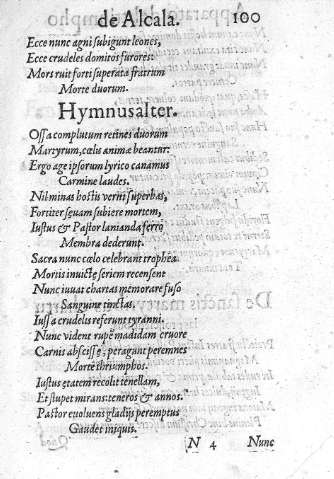 de Alcala. 100
Ecce nunc agni subigunt leones,
Ecce crudeles domitos furores:
Mors ruit forti superata fratrum
Morte duorum.
Hymnus alter.
Ossa complutum retines duorum
Martyrum, cœlis animæ beantur:
Ergo age ipsorum lyrico canamus
Carmine laudes.
Nil minas hostis veriti superbas,
Fortiter sęuam subiere mortem,
Iustus & Pastor lanianda ferro
Membra dederunt.
Sacra nunc cœlo celebrant trophea
Mortis inuictę seriem recensent
Nunc iuuat chartas memorare fuso
Sanguine tinctas,
Iussa crudelis referunt tyranni.
Nunc vident rupẽ madidam cruore
Carnis abscissę; peragunt peremnes
Morte thriumphos.
Iustus ętatem recolit tenellam,
Et stupet mirans: teneros & annos.
Pastor euoluens gladijs peremptus
Gaudet iniquis.
N 4 Nunc